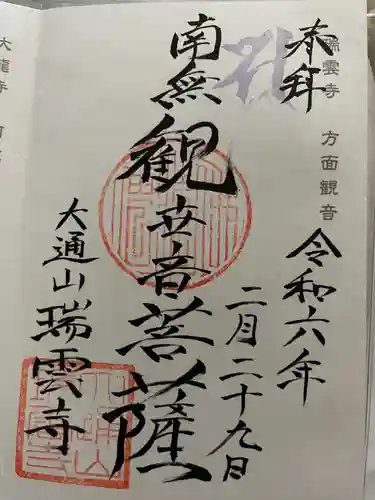 奉拝
瑞雲寺 方面観音
令和六年
二月二十九日
南無観世音菩薩
大通山瑞雲寺
大龍寺